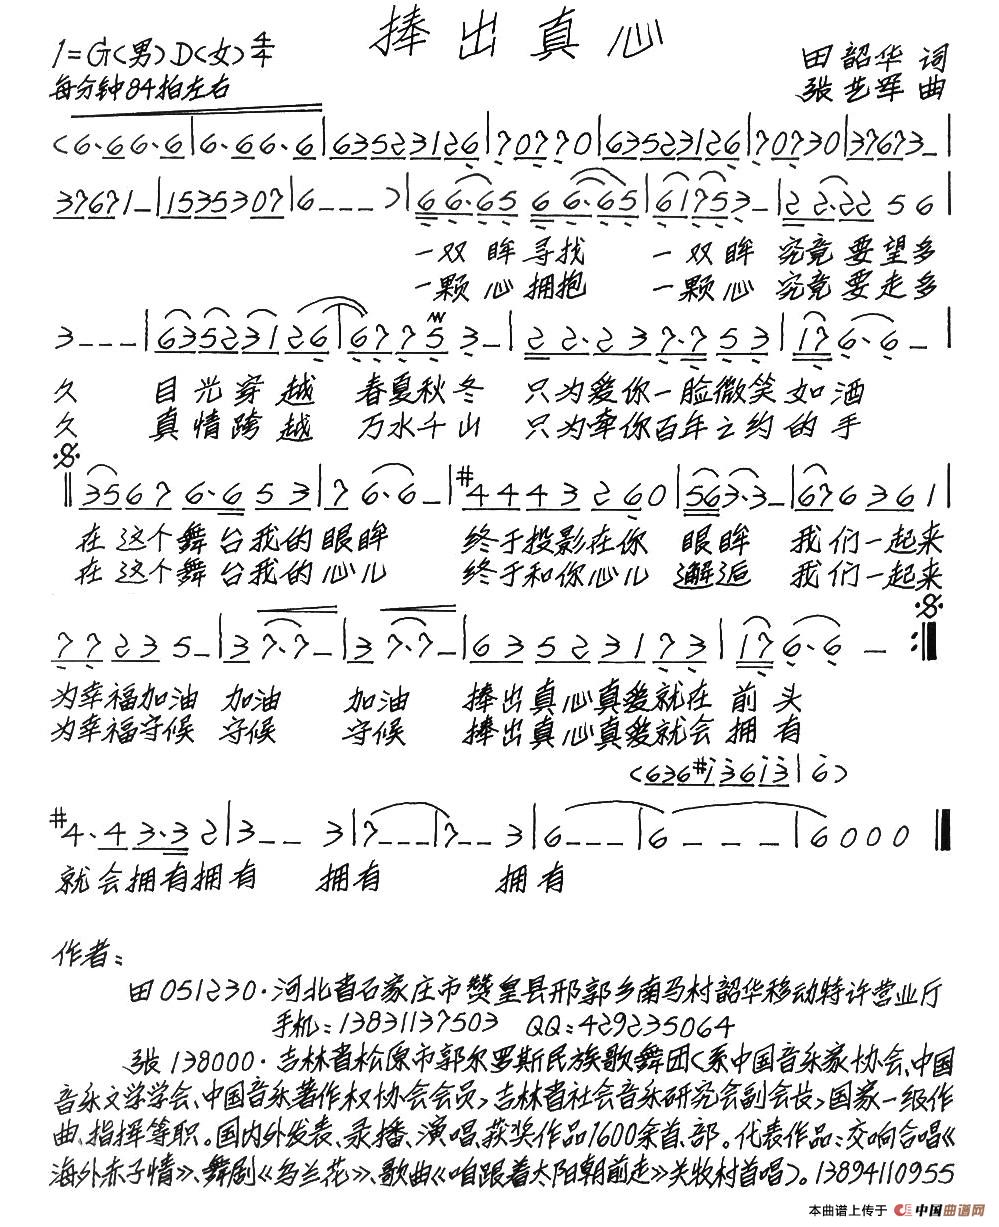 捧出真心
1=G(男) D(女) 4/4
田韶华 词
每分钟84拍左右
张艺军 曲
(6·6 6·6|6·6 6·6|63523126|707 70|63523126|707 30|37673–|
37671–|1535307|6–––)|6 6·65 6 6·65|6175 3–|2 2·22 5 6|
一双眸寻找 一双眸 究竟要望多
一颗心拥抱 一颗心 究竟要走多
3–––|63523126|6775 3–|2 2·2 3 7·7 5 3|17 6·6–|
久 目光穿越 春夏秋冬 只为爱你一脸微笑如酒
久 真情跨越 万水千山 只为牵你百年之约的手
‖3567 6·6 5 3|7 6·6–|#4 4 4 3 2 6 0|563·3–|676361|
在这个舞台我的眼眸 终于投影在你 眼眸 我们一起来
在这个舞台我的心儿 终于和你心儿 邂逅 我们一起来
7 7 2 3 5–|3 7·7–|3 7·7–|6 3 5 2 3 1 7 3|17 6·6–:‖
为幸福加油 加油 加油 捧出真心真爱就在 前头
为幸福守候 守候 守候 捧出真心真爱就会 拥有
(636#i36i3|6)
#4·4 3·3 2|3–– 3|7–––|7–– 3|6–––|6–––|6000‖
就会拥有拥有 拥有 拥有
作者:
田 051230·河北省石家庄市赞皇县邢郭乡南马村韶华移动特许营业厅
手机:13831137503 QQ:429235064
张 138000·吉林省松原市郭尔罗斯民族歌舞团(系中国音乐家协会、中国
音乐文学学会、中国音乐著作权协会会员,吉林省社会音乐研究会副会长,国家一级作
曲、指挥等职。国内外发表、录播、演唱、获奖作品1600余首、部。代表作品:交响合唱《
海外赤子情》、舞剧《乌兰花》、歌曲《咱跟着太阳朝前走》关牧村首唱)。13894110955
本曲谱上传于 中国曲谱网